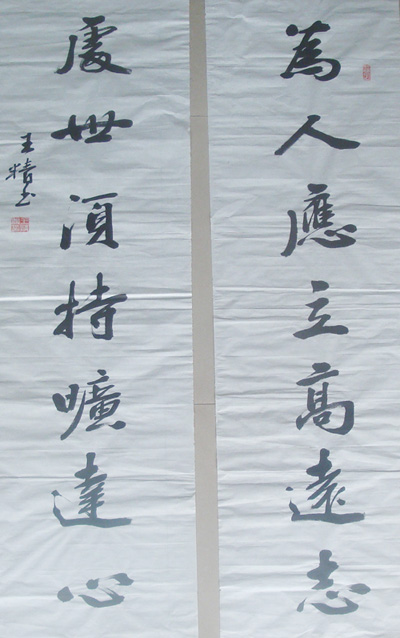 為人應立高遠志
處世須持曠達心
王精书